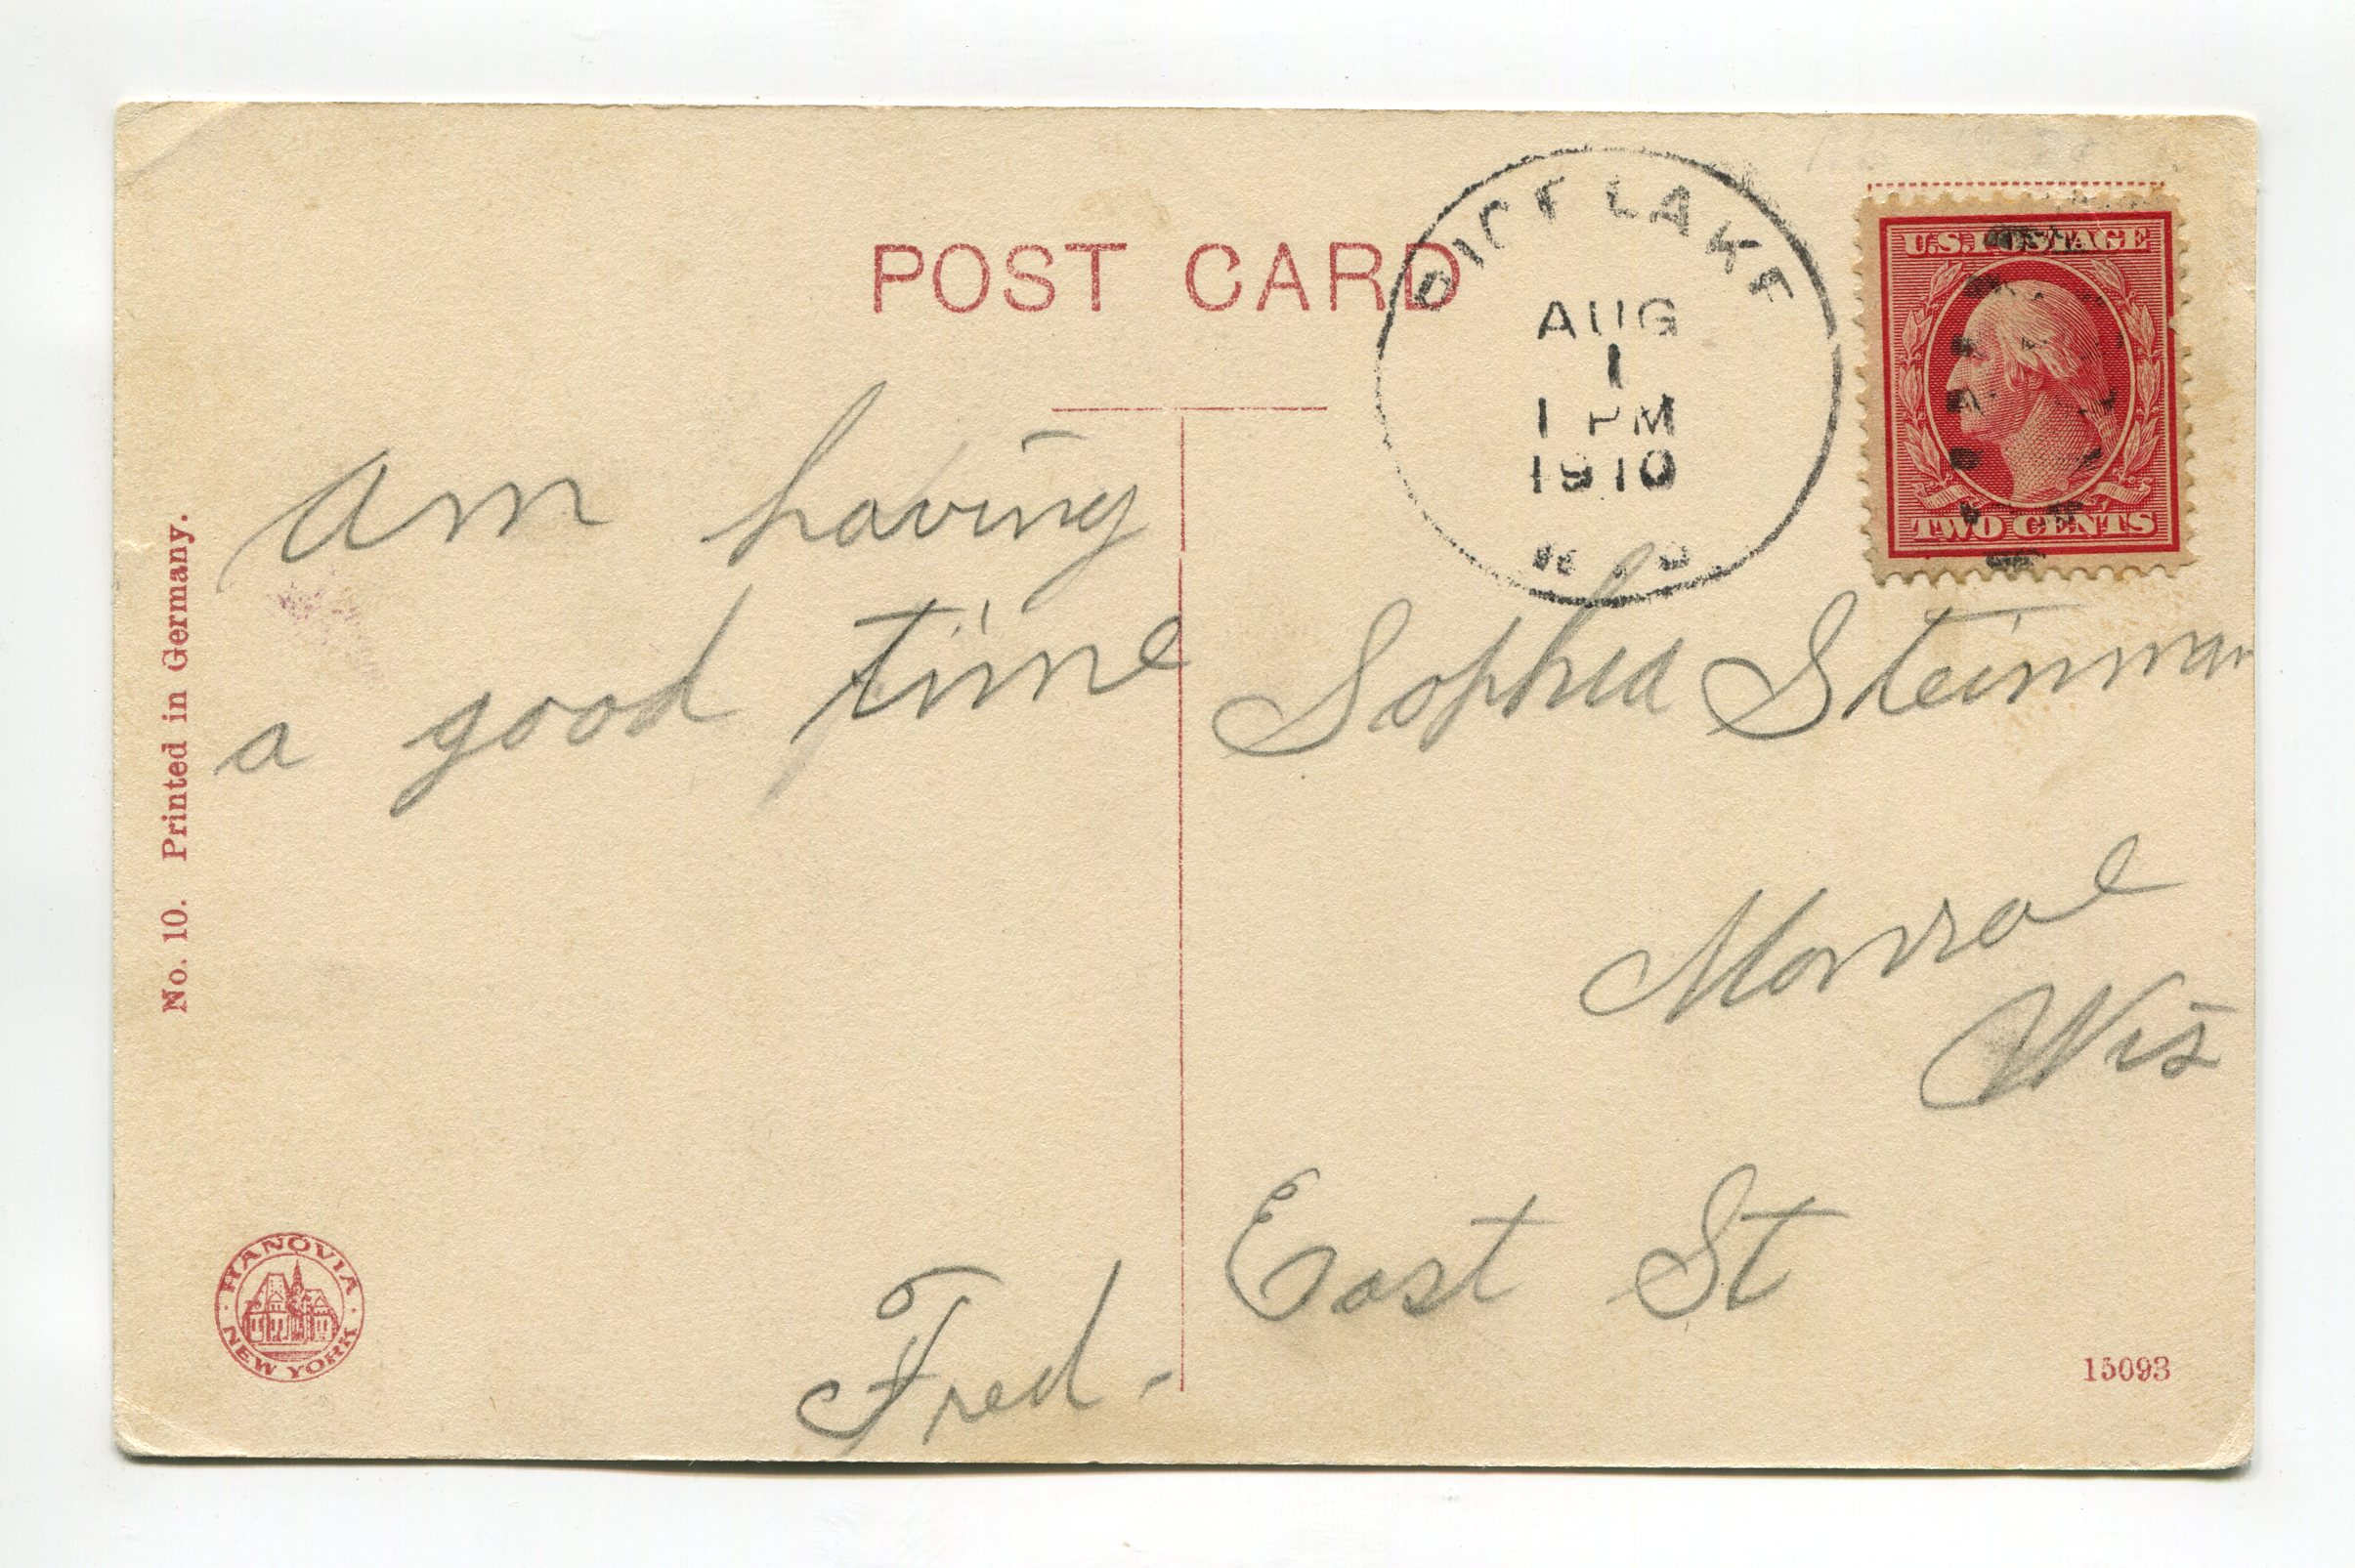 POST CARD
RICE LAKE
AUG
1
1 PM
1910
WIS.
U.S. POSTAGE
TWO CENTS
am having
a good time
Fred.
Sophia Steinman
Monroe
Wis
East St
No. 10. Printed in Germany.
HANOVIA
NEW YORK
15093